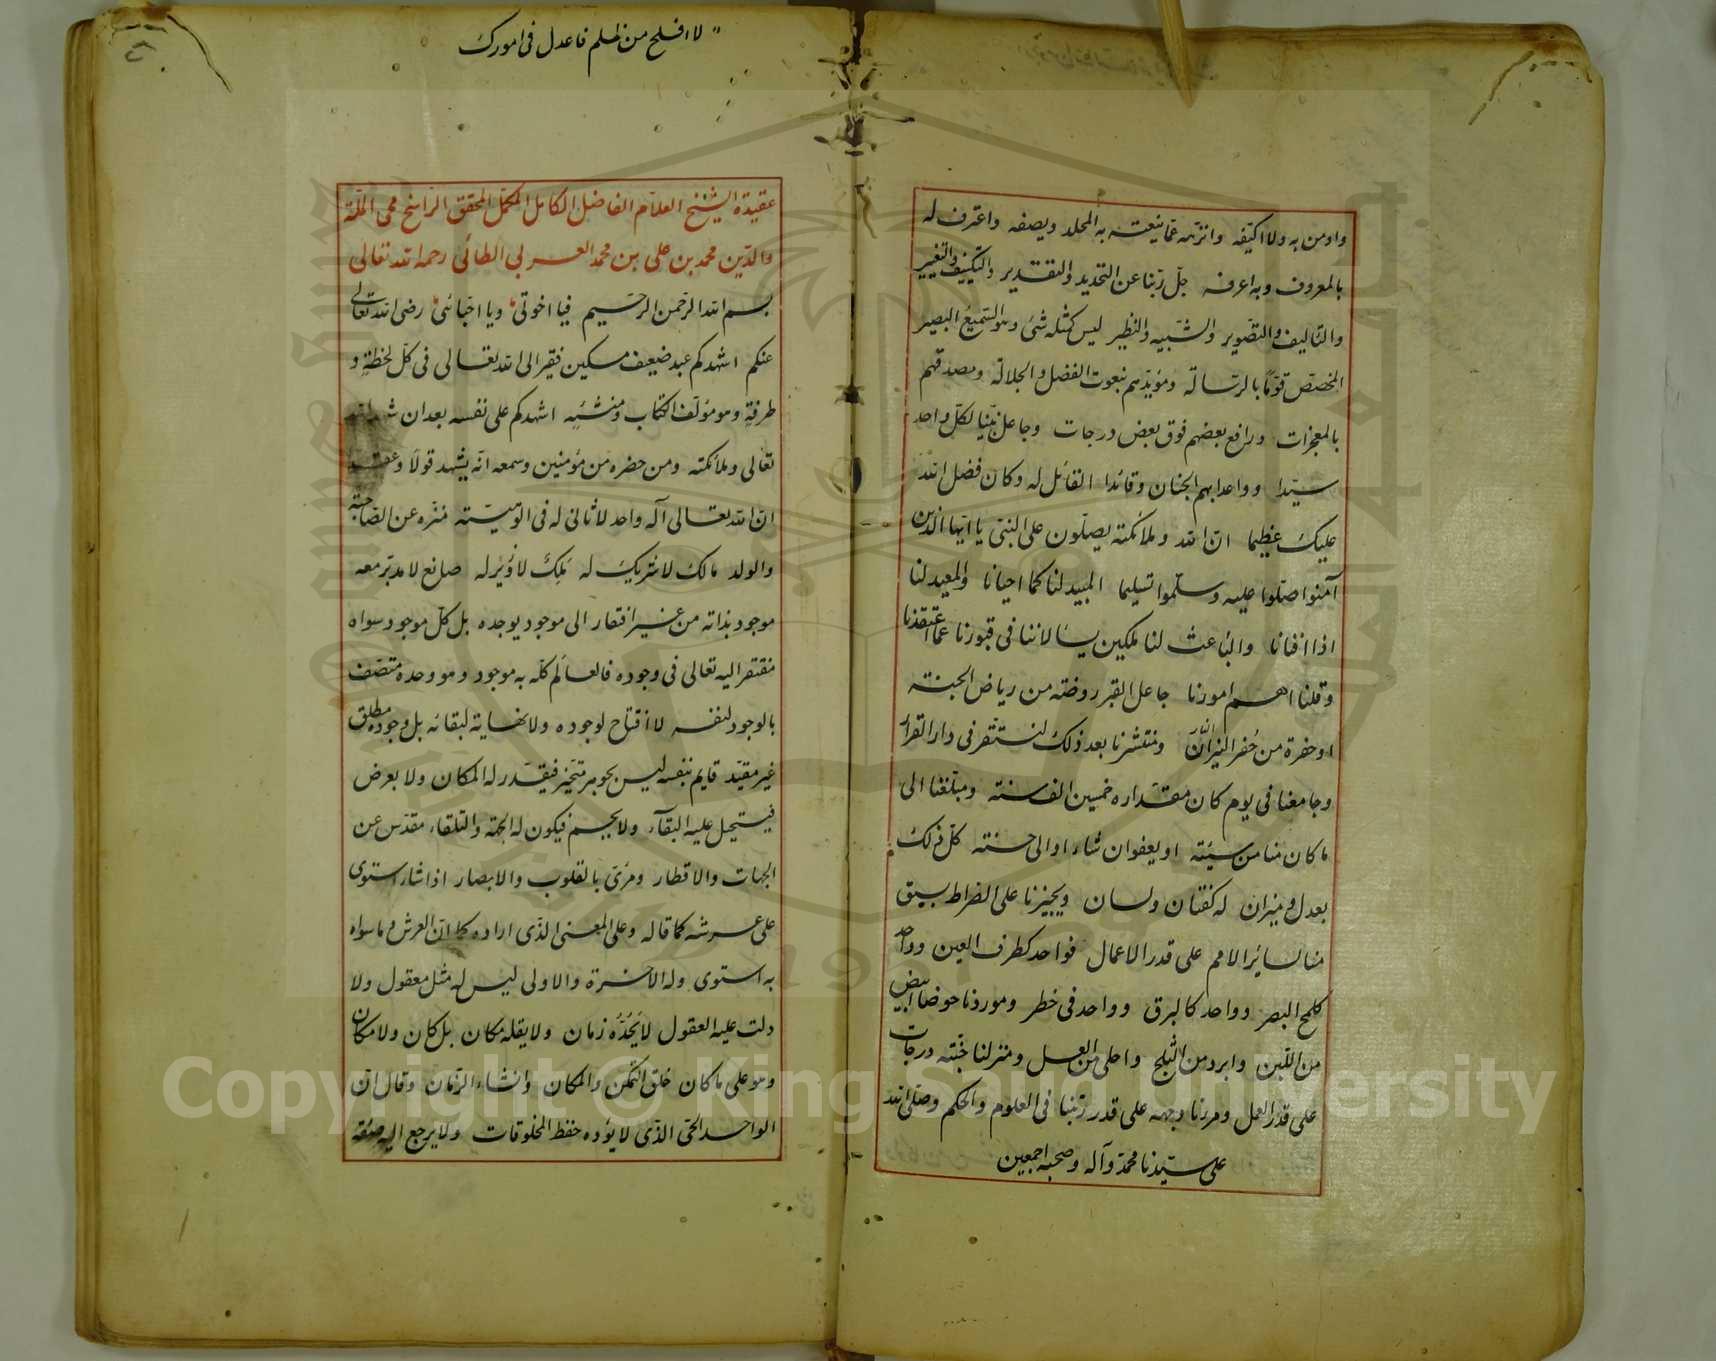 واومن به ولا اكيّفه وانزّهه عمّا ينعته به الملحد ويصفه واعترف له
بالمعروف وبه اعرفه جلّ ربّنا عن التحديد والتقدير والتكييف والتغيير
والتاليف والتصوير والشبيه والنظير ليس كمثله شئ وهو السميع البصير
المخصّص قومًا بالرسالة ومؤيّدهم بنعوت الفضل والجلالة ومصدقهم
بالمعجزات ورافع بعضهم فوق بعض درجات وجاعل نبيّنا لكلّ واحد
سيّدا وواعدا بهم الجنان وقائدا القائل له وكان فضل الله
عليك عظيما انّ الله وملائكته يصلّون على النبيّ يا ايّها الذين
آمنوا صلّوا عليه وسلّموا تسليما المبيد لنا كما احيانا والمعيد لنا
اذا افنانا والباعث لنا ملكين يسالاننا فى قبورنا عمّا اعتقدنا
وقلنا اهم امورنا جاعل القبر روضة من رياض الجنة
او حفرة من حُفر النيران ومنتشرنا بعد ذلك لنستقر فى دار القرار
وجامعنا فى يوم كان مقداره خمسين الف سنة ومبلّغنا الى
ما كان منا من سيّئة او يعفو ان شاء او الى حسنة كلّ ذلك
بعدل وميزان له كفتان ولسان ويجيزنا على الصراط يسبق
منا لسائر الامم على قدر الاعمال فواحد كطرف العين وواحد
كلمح البصر وواحد كالبرق وواحد فى خطر ومورذنا حوضا ابيض
من اللبن وابرد من الثلج واحلى من العسل ومنزلنا جنّته درجات
على قدر العمل ومرنا وجهه على قدر رتبنا فى العلوم والحكم وصلّى الله
على سيّدنا محمّد وآله وصحبه اجمعين
لا افلح من ظلم فاعدل فى امورك
عقيدة الشيخ العلاّم الفاضل الكامل المكمّل المحقق الراسخ محى الملّة
والدّين محمد بن على بن محمد العربى الطائى رحمه الله تعالى
بسم الله الرحمن الرحيم فيا اخوتى ويا احبّائى رضى الله تعالى
عنكم اشهدكم عبد ضعيف مسكين فقير الى الله تعالى فى كلّ لحظة و
طرفة وهو مؤلّف الكتاب ومنشئه اشهدكم على نفسه بعد ان شهد الله
تعالى وملائكته ومن حضره من مؤمنين وسمعه انّه يشهد قولا وعقدا
انّ الله تعالى آله واحد لا ثانى له فى الوهيّته منزّه عن الصاحبة
والولد مالك لا شريك له مَلِك لا وزير له صانع لا مدبّر معه
موجود بذاته من غير افتقار الى موجود يوجده بل كلّ موجود سواه
مفتقر اليه تعالى فى وجوده فالعالم كلّه به موجود وهو وحده متصّف
بالوجود لنفسه لا افتتاح لوجوده ولا نهاية لبقائه بل وجوده مطلق
غير مقيّد قايم بنفسه ليس بجوهر متحيّز فيقدّر له المكان ولا بعرض
فيستحيل عليه البقآء ولا بجسم فيكون له الجهة والتلقاء مقدّس عن
الجهات والاقطار ومرئى بالقلوب والابصار اذا شاء استوى
على عرشه كما قاله وعلى المعنى الذى اراده كما انّ العرش وما سواه
به استوى وله الاخرة والاولى ليس له مثل معقول ولا
دلت عليه العقول لا يحُدُّه زمان ولا يقله مكان بل كان ولا مكان
وهو على ما كان خلق المتمكّن والمكان وانشاء الزمان وقال انّ
الواحد الحىّ الذّى لا يؤده حفظ المخلوقات ولا يرجع اليه صفة
Copyright © King Saud University